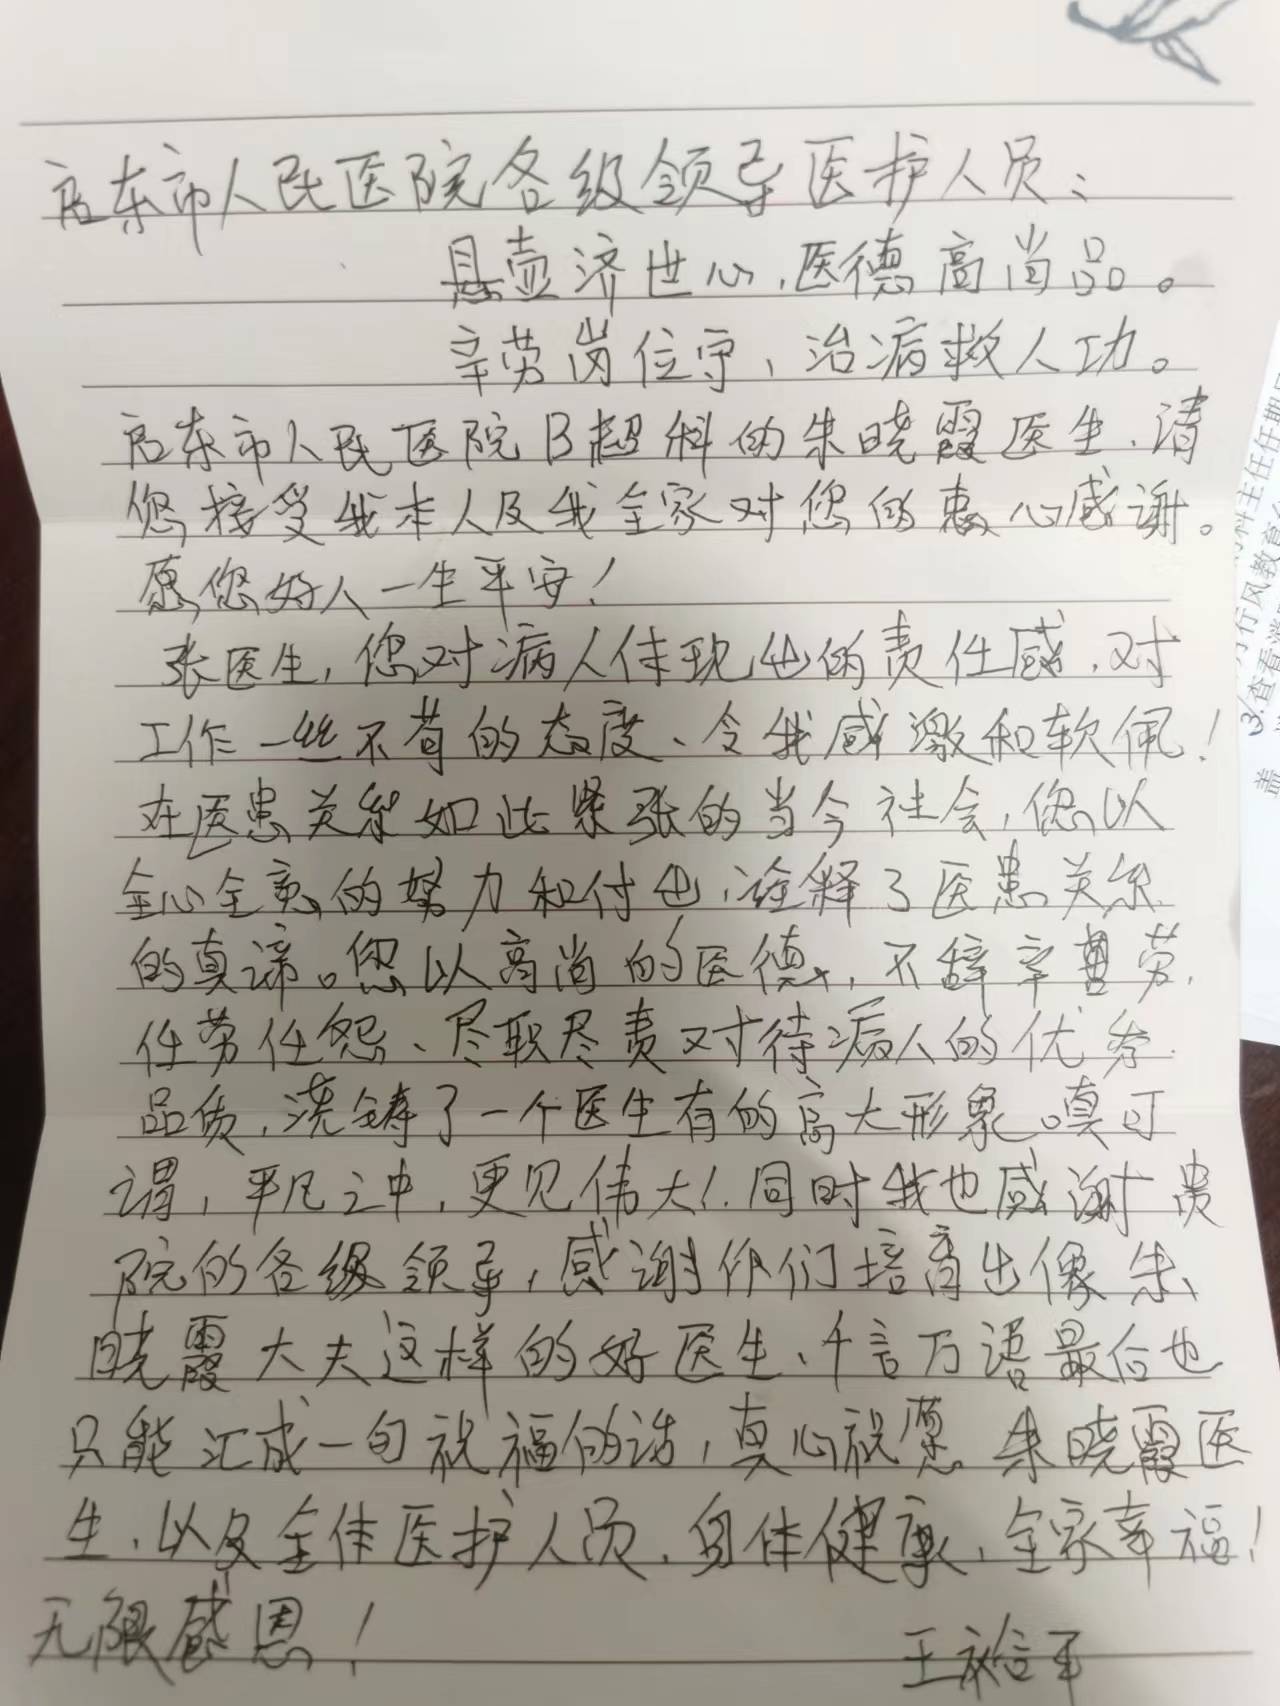 启东市人民医院各级领导医护人员:
悬壶济世心,医德高尚品。
辛劳岗位守,治病救人功。
启东市人民医院B超科的朱晓霞医生,请
您接受我本人及我全家对您的衷心感谢。
愿您好人一生平安!
张医生,您对病人体现出的责任感,对
工作一丝不苟的态度、令我感激和软佩!
在医患关系如此紧张的当今社会,您以
全心全意的努力和付出,诠释了医患关系
的真谛。您以高尚的医德,不辞辛劳,
任劳任怨、尽职尽责对待病人的优秀
品质,浇铸了一个医生有的高大形象。真可
谓,平凡之中,更见伟大!.同时我也感谢贵
院的各级领导,感谢你们培育出像朱
晓霞大夫这样的好医生、千言万语最后也
只能汇成一句祝福的话,真心祝愿朱晓霞医
生,以及全体医护人员,身体健康,全家幸福!
无限感恩!
王
科主任任期
行风教育
3.查看